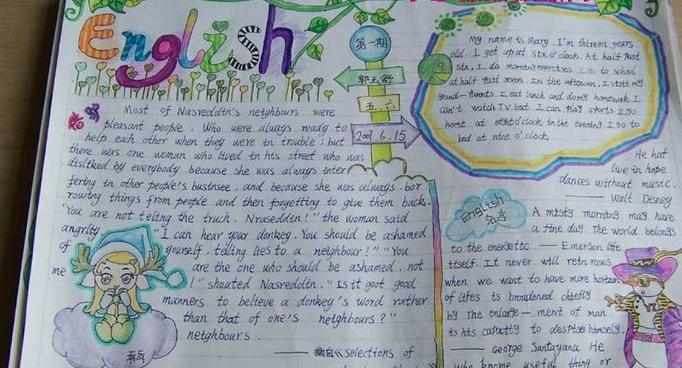 English
第一期
五、六
2009.6.15
Most of Nasreddin's neighbours were
pleasant people. Who were always ready to
help each other when they were in trouble! but
there was one woman who lived in his street who was
disliked by everybody because she was always inter
fering in other people's businsee, and because she was always bor
rowing things from people and then forgetting to give them back.
"You are not teling the truch. Nraseddin!" the woman said
angrlity "I can hear your donkey. You should be ashamed
of yourself, telling lies to a neighbour!" "You
me are the one who should be ashamed, not
!" shouted Nasreddin. "Is it goot good
manners to believe a donkey's word rather
than that of one's neighbours?"
neighbour's.
—— selections of
My name is Mary. I'm thirteen years
old. I get up at six o'clock. At half past
six, I do morning exercises. I go to school
at half past seven. In the afternoon, I visit my
grand-parents. I eat lunch and do my homework. I
can't watch TV. but I can play sports. I go
home at eight o'clock. In the evening I go to
bed at nine o'clock.
He that
live in hope
dances without music.
—— Walt Desney
English
A misty morning may have
a fine day. The world belongs
to the energetic —— Emerson life
itself. It never will retn roses
when we want to have more
of lifes is broadened chiefly
by the enlarge-ment of man
is his capacity to despise himself.
—— George Santayana He
who knows useful thing or